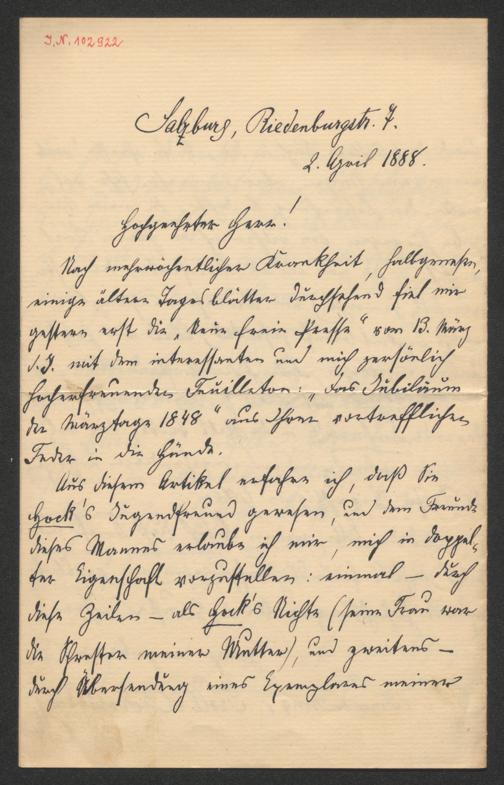 J.N. 102922
Salzburg, Riedenburgstr. 7.
2. April 1888.
Hochgeehrter Herr!
Nach mehrwöchentlicher Krankheit, halbgenesen,
einige ältere Tagesblätter durchsehend fiel mir
gestern erst die „Neue freie Presse“ vom 13. März
d. J. mit dem interessanten und mich persönlich
hocherfreuenden Feuilleton: „Das Jubiläum
der Märztage 1848“ aus Ihrer vortrefflichen
Feder in die Hände.
Aus diesem Artikel erfahre ich, daß Sie
Hock's Jugendfreund gewesen, und dem Freunde
dieses Mannes erlaube ich mir, mich in doppel-
ter Eigenschaft vorzustellen: einmal – durch
diese Zeilen – als Hock's Nichte (seine Frau war
die Schwester meiner Mutter), und zweitens –
durch Übersendung eines Exemplares meiner